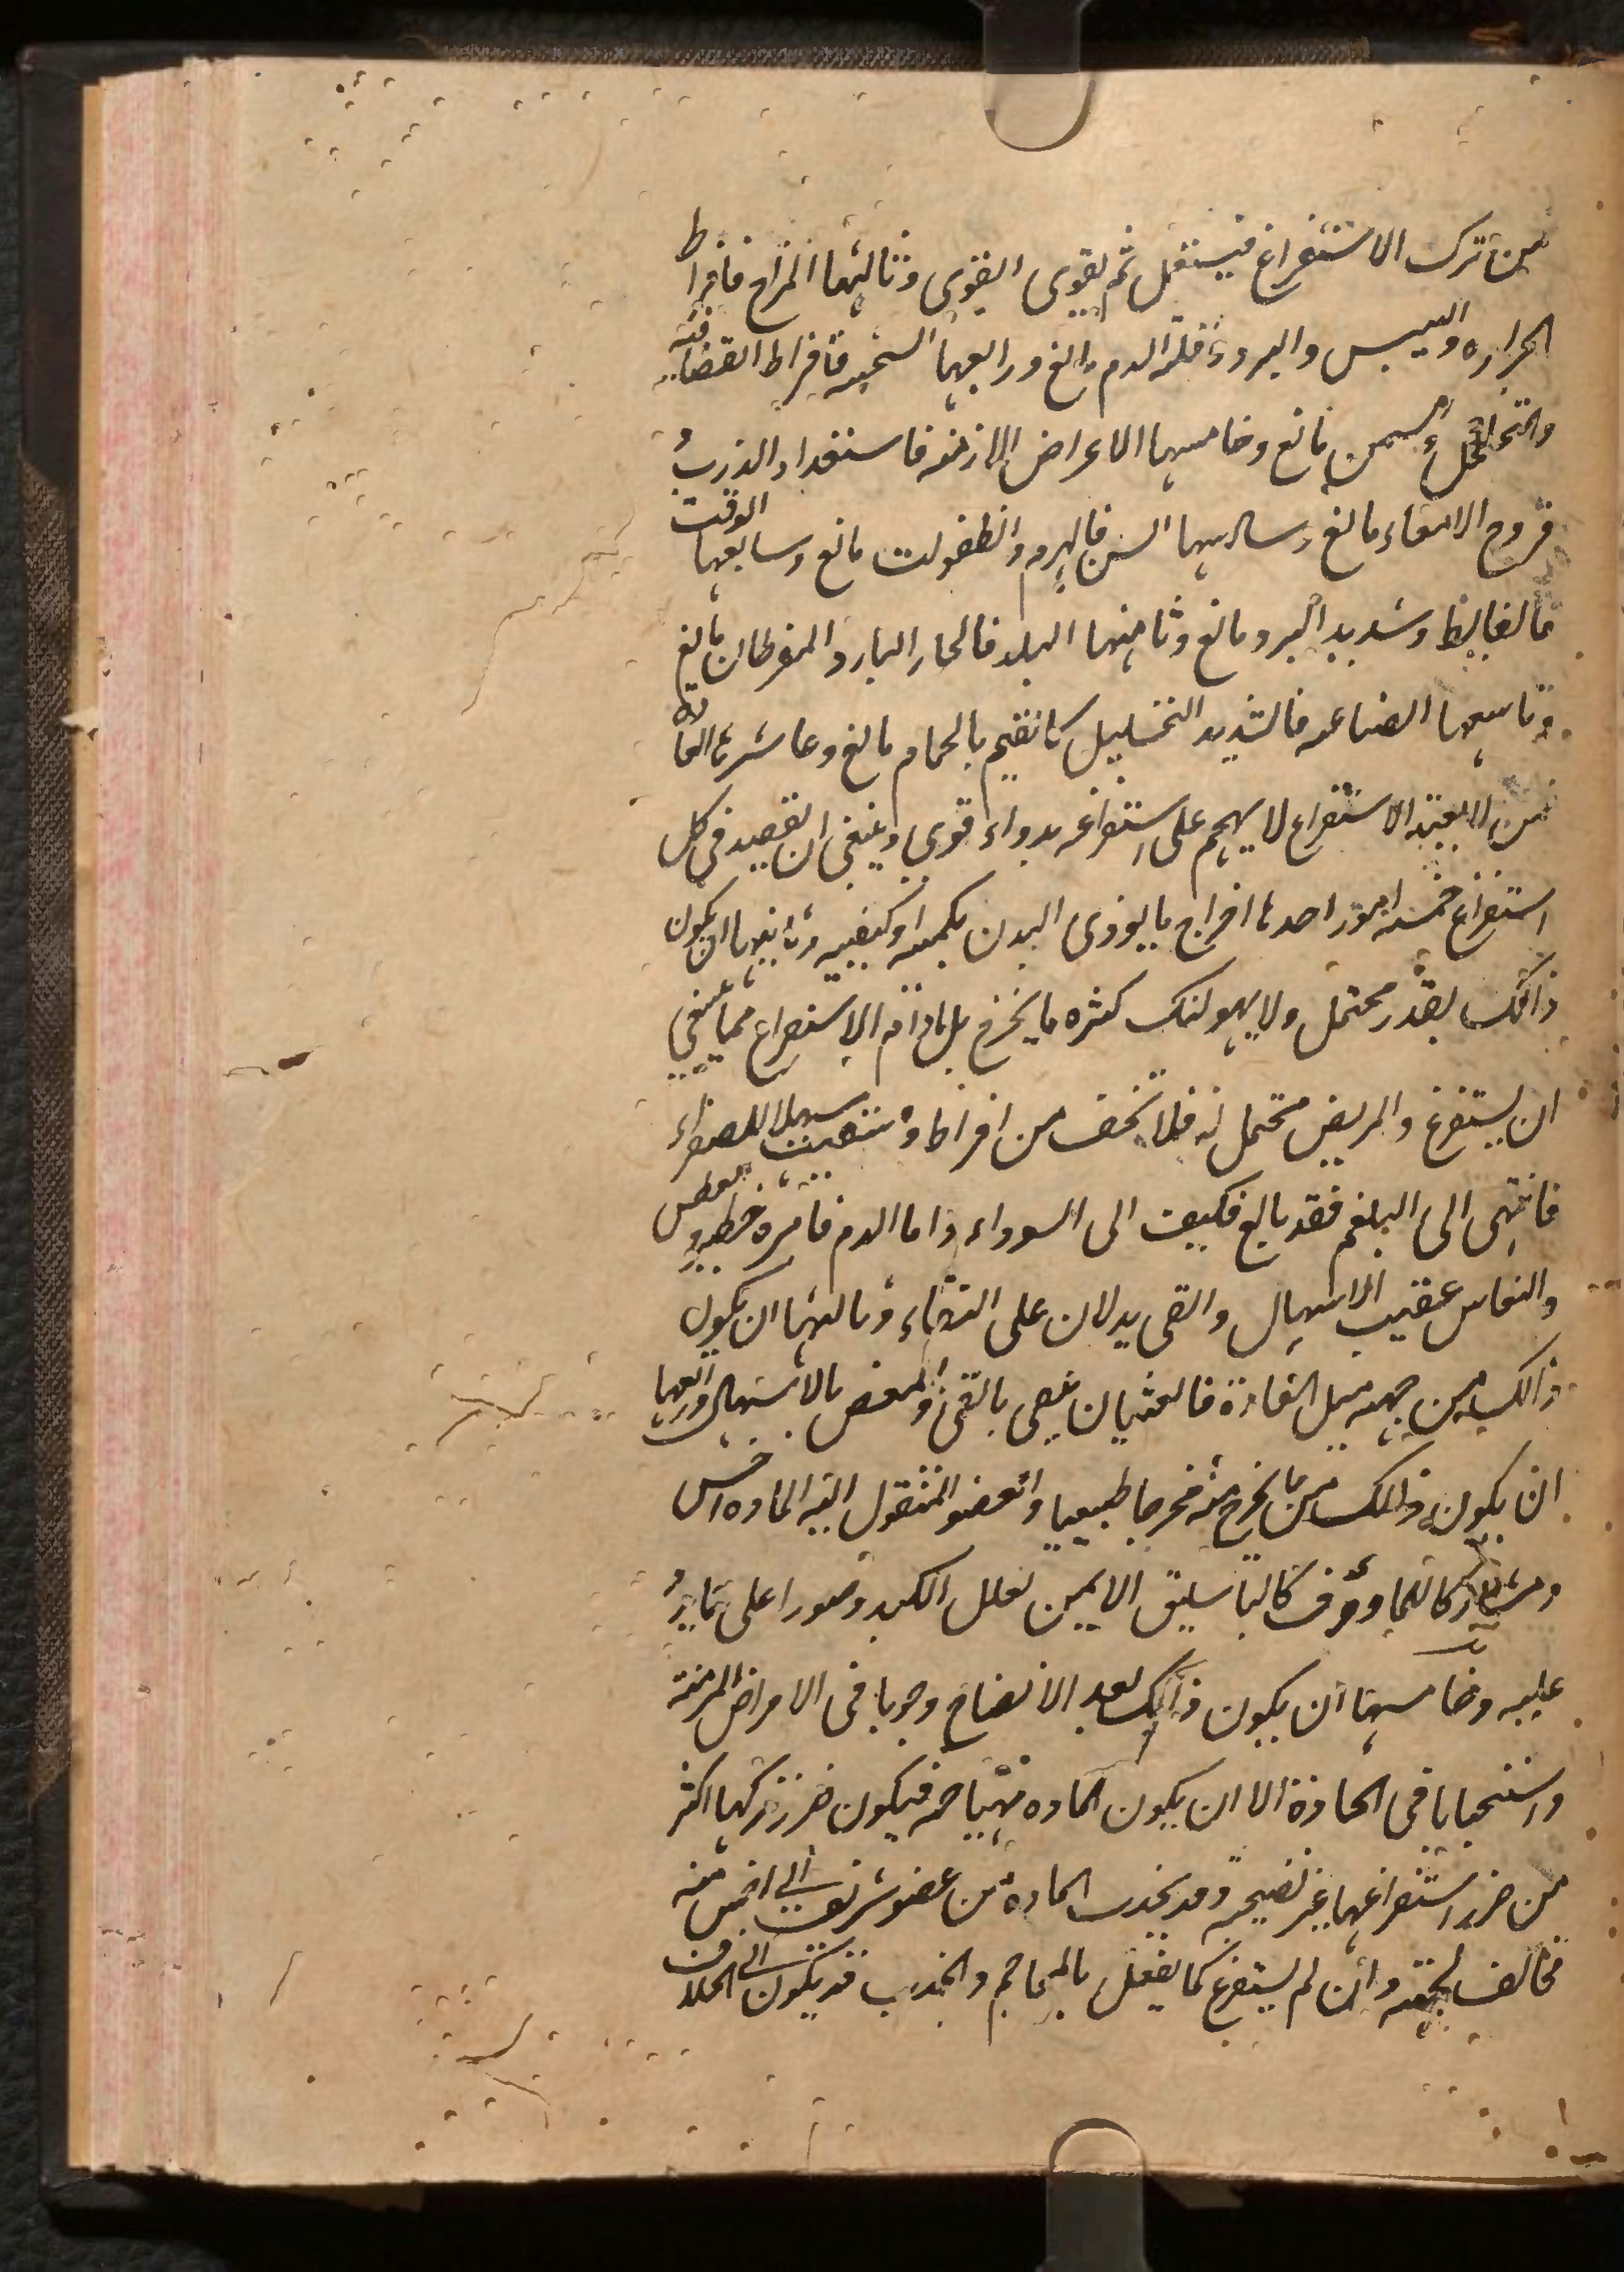 من ترك الاستفراغ فيستفعل ثم يقوى القوى وثالثها المزاج فافراط
الحراره واليبس والبرودة وقلة الدم مانع ورابعها السحنه فافراط القضافة
والتخلخل والسمن مانع وخامسها الاعراض اللازمه فاستعداد الذرب
قروح الامعاء مانع وسادسها السن فالهرم والطفولت مانع وسابعها الوقت
فالغايظ وشديد البرد مانع وثامنها البلد فالحار البارد المفرطان مانع
وتاسعها الصناعه فالشديد التحليل كالقيم بالحمام مانع وعاشرها العادة
فمن لا يعتد الاستفراغ لا يهجم على استفراغه بدواء قوى وينبغى ان يقصد فى كل
استفراغ خمسه امور احدها اخراج ما يوذى البدن بكميته او كيفيته وثانيها ان يكون
ذالك بقدر محتمل ولا يهولنك كثره ما يخرج بل مادام الاستفراغ مما ينبغى
ان يستفرغ والمريض محتمل له فلا تخف من افراطه وسقيت مسهلا للصفراء
فانتهى الى البلغم فقد بالغ فكيف الى السوداء واما الدم فامره خطير والعطس
والنعاس عقيب الاسهال والقى يدلان على النقاء وثالثها ان يكون
ذالك من جهه ميل المادة فالغثيان ينقى بالقئ والمغص بالاسهال ورابعها
ان يكون ذالك من ما يخرج منه مخرجا طبيعيا والعضو المنقول اليه الماده اخس
ومشاركا للماوؤف كالباسليق الايمن لعلل الكبد وصبورا على ما يرد
عليه وخامسها ان يكون ذالك بعد الانضاج وجوبا فى الامراض المزمنة
واستحبابا فى الحادة الا ان يكون الماده مهتاجه فيكون ضرر تركها اكثر
من ضرر استفراغها غير نضيجه وقد يجذب المادة من عضو شريف الى اخس منه
مخالف لجهته وان لم يستفرغ كما يفعل بالمحاجم والجذب قد يكون الى الخلاف